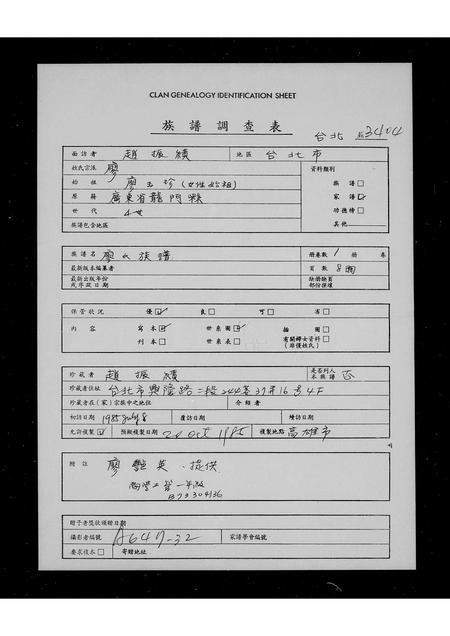 CLAN GENEALOGY IDENTIFICATION SHEET
族譜調查表
台北 3404
面訪者 趙振績 地區 台北市
姓氏宗派 廖 資料類別
始祖 廖玉珍(女性始祖) 族譜 □
原籍 廣東省龍門縣 家譜 ☑
世代 4世 功德榜 □
族譜包含地區 其他
族譜名 廖氏族譜 冊卷數 1 冊 卷
最新版本編纂者 頁數 8
最新出版年份 缺冊缺頁
或序跋日期 部份採塡
保管狀況 優 ☑ 良 □ 可 □ 劣 □
內容 寫本 ☑ 世系圖 ☑ 插圖 □
刊本 □ 世系表 □ 有關婦女資料 □
(非僅姓氏)
珍藏者 趙振績 是否列入本族譜 否
珍藏者住址 台北市興隆路二段244巷37弄16号4F
珍藏者在(家)宗族中之地位 介紹者
初訪日期 1985 覆訪日期 續訪日期
允許複製 ☑ 預擬複製日期 24 Oct 1985 複製地點 高雄市
附註 廖艷英提供
B73304136
贈予者獎狀頒贈日期
攝影者編號 A647-32 家譜學會編號
要求複本 □ 寄贈地址